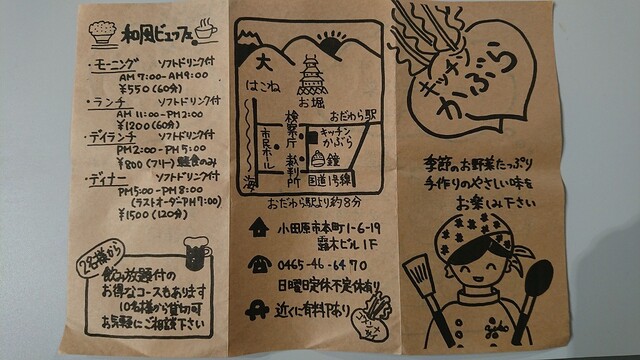 和風ビュッフェ
・モーニング ソフトドリンク付
AM7:00-AM9:00
¥550(60分)
・ランチ ソフトドリンク付
AM11:00-PM2:00
¥1200(60分)
・デイランチ ソフトドリンク付
PM2:00-PM5:00
¥800(フリー)軽食のみ
・ディナー ソフトドリンク付
PM5:00-PM8:00
(ラストオーダーPM7:00)
¥1500(120分)
2名様から
飲み放題付の
お得なコースもあります
10名様から貸切可
お気軽にご相談下さい
大
はこね
お堀
おだわら駅
検察庁
市民ホール
キッチン
かぶら
鐘
裁判所
国道1号線
海
おだわら駅より約8分
小田原市本町1-6-19
露木ビル1F
0465-46-6470
日曜日定休不定休あり
近くに有料Pあり
キッチン
かぶら
季節のお野菜たっぷり
手作りのやさしい味を
お楽しみ下さい